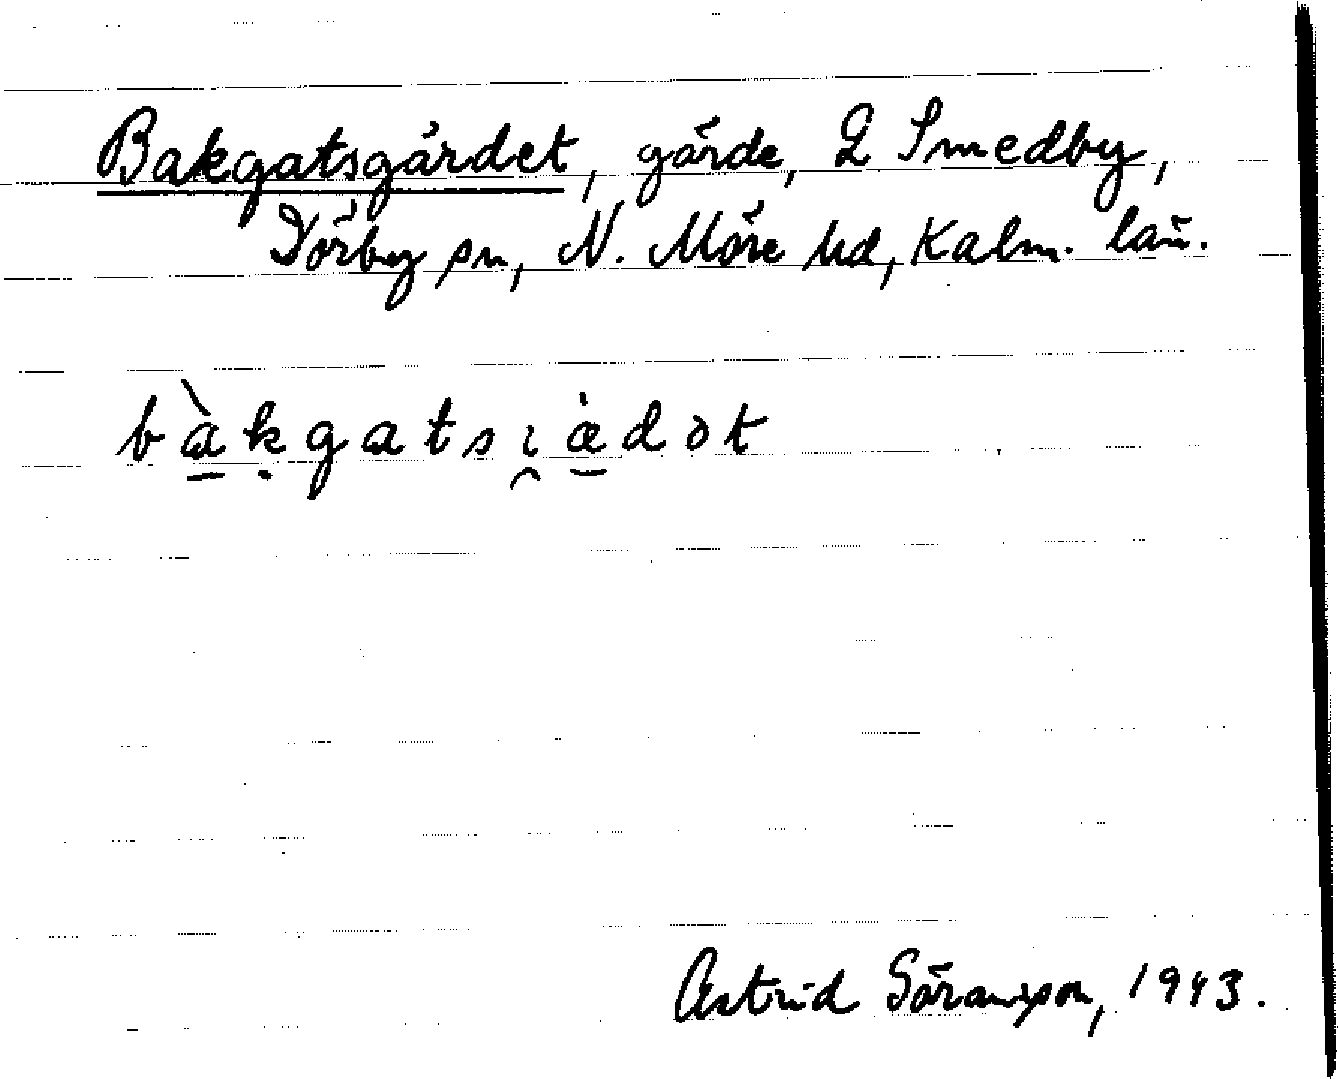 Bakgatsgärdet, gärde, 2 Smedby,
Dörby sn, N. Möre hd, Kalm. län.
bàkgatsɩædət
Astrid Göransson, 1943.